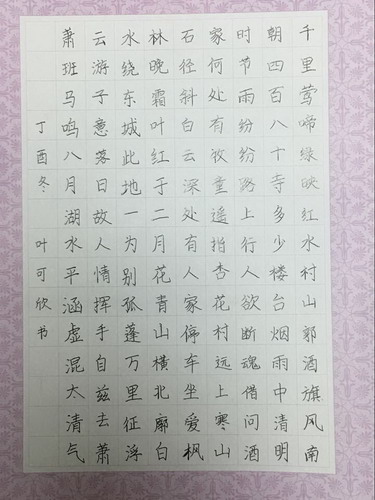 千里莺啼绿映红水村山郭酒旗风南
朝四百八十寺多少楼台烟雨中清明
时节雨纷纷路上行人欲断魂借问酒
家何处有牧童遥指杏花村远上寒山
石径斜白云深处有人家停车坐爱枫
林晚霜叶红于二月花青山横北廓白
水绕东城此地一为别孤蓬万里征浮
云游子意落日故人情挥手自兹去萧
萧班马鸣八月湖水平涵虚混太清气
丁酉冬 叶可欣书